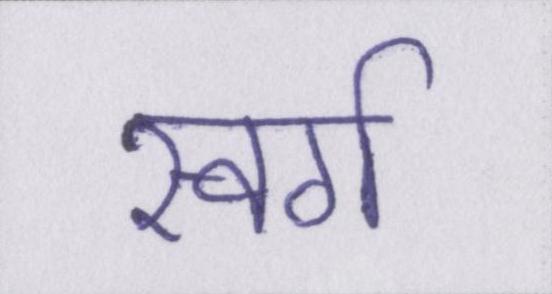 स्वर्ग